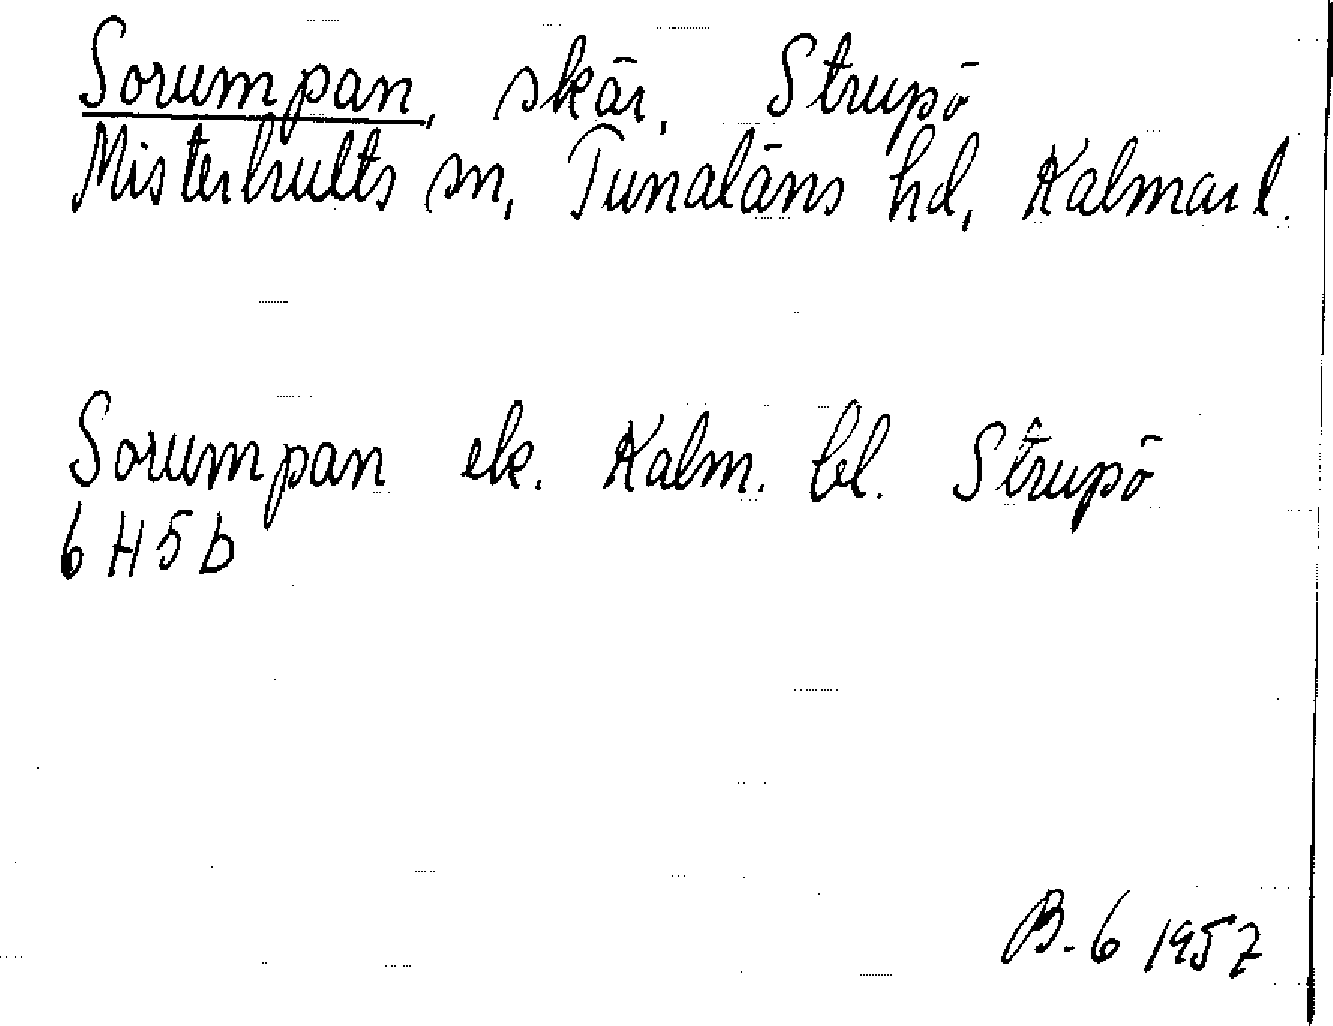 Sorumpan, skär, Strupö
Misterhults sn, Tunaläns hd, Kalmar l.
Sorumpan ek. Kalm. bl. Strupö
6 H 5 b
B-6 1957